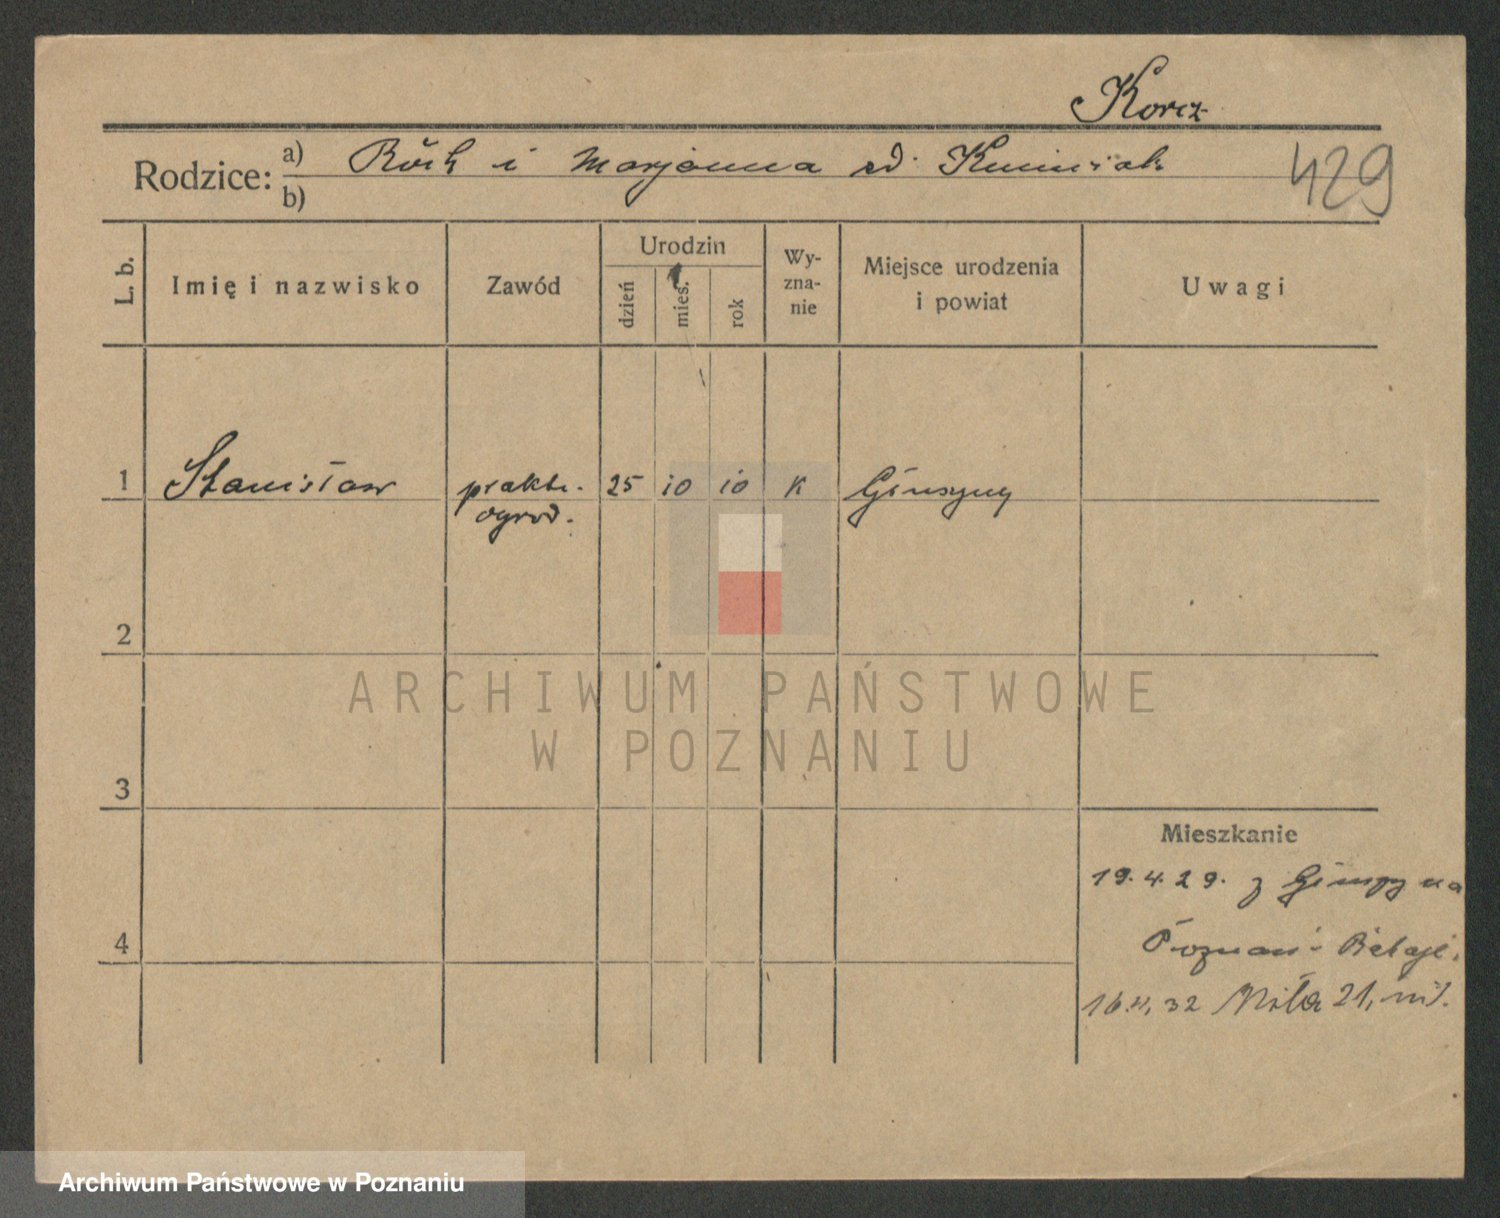 Korcz
Rodzice: a) Röch i Marjanna zd. Kuminiak
b)
429
L. b.
Imię i nazwisko
Zawód
Urodzin
dzień
mies.
rok
Wy-
zna-
nie
Miejsce urodzenia
i powiat
Uwagi
1 Stanisław prakt. 25 10 10 K
ogrod.
2
3
4
Mieszkanie
19.4.29. z na
Poznań
16.4.32 Miła 21,
ARCHIWUM PAŃSTWOWE
W POZNANIU
Archiwum Państwowe w Poznaniu